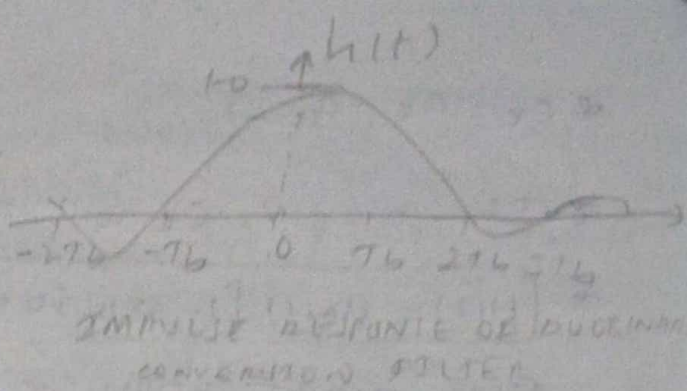 h(t)
1.0
-2Tb -Tb 0 Tb 2Tb 3Tb
IMPULSE RESPONSE OF DUOBINARY
CONVERSION FILTER